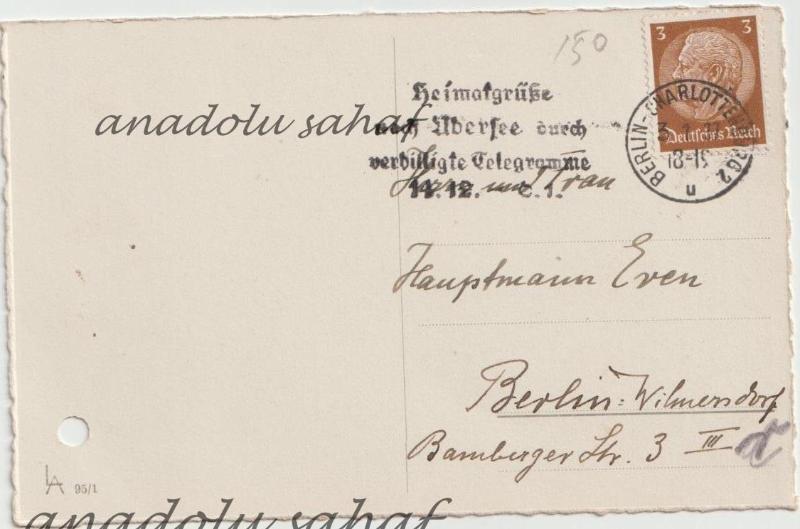 150
3 3
Deutsches Reich
BERLIN-CHARLOTTENBURG 2
18-19
u
Heimatgrüße
nach Übersee durch
verbilligte Telegramme
14.12. 1.
anadolu sahaf
Herrn und Frau
Hauptmann Even
Berlin-Wilmersdorf
Bamberger Str. 3 III
LA 95/1
anadolu sahaf